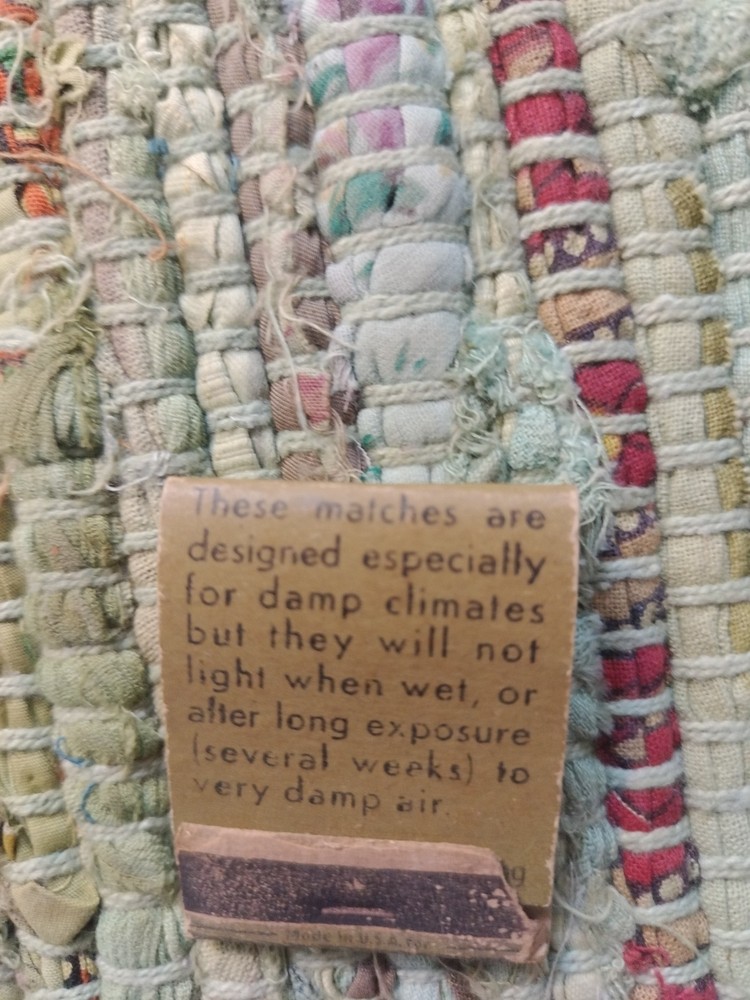 These matches are
designed especially
for damp climates
but they will not
light when wet, or
after long exposure
(several weeks) to
very damp air.
Made in U.S.A.